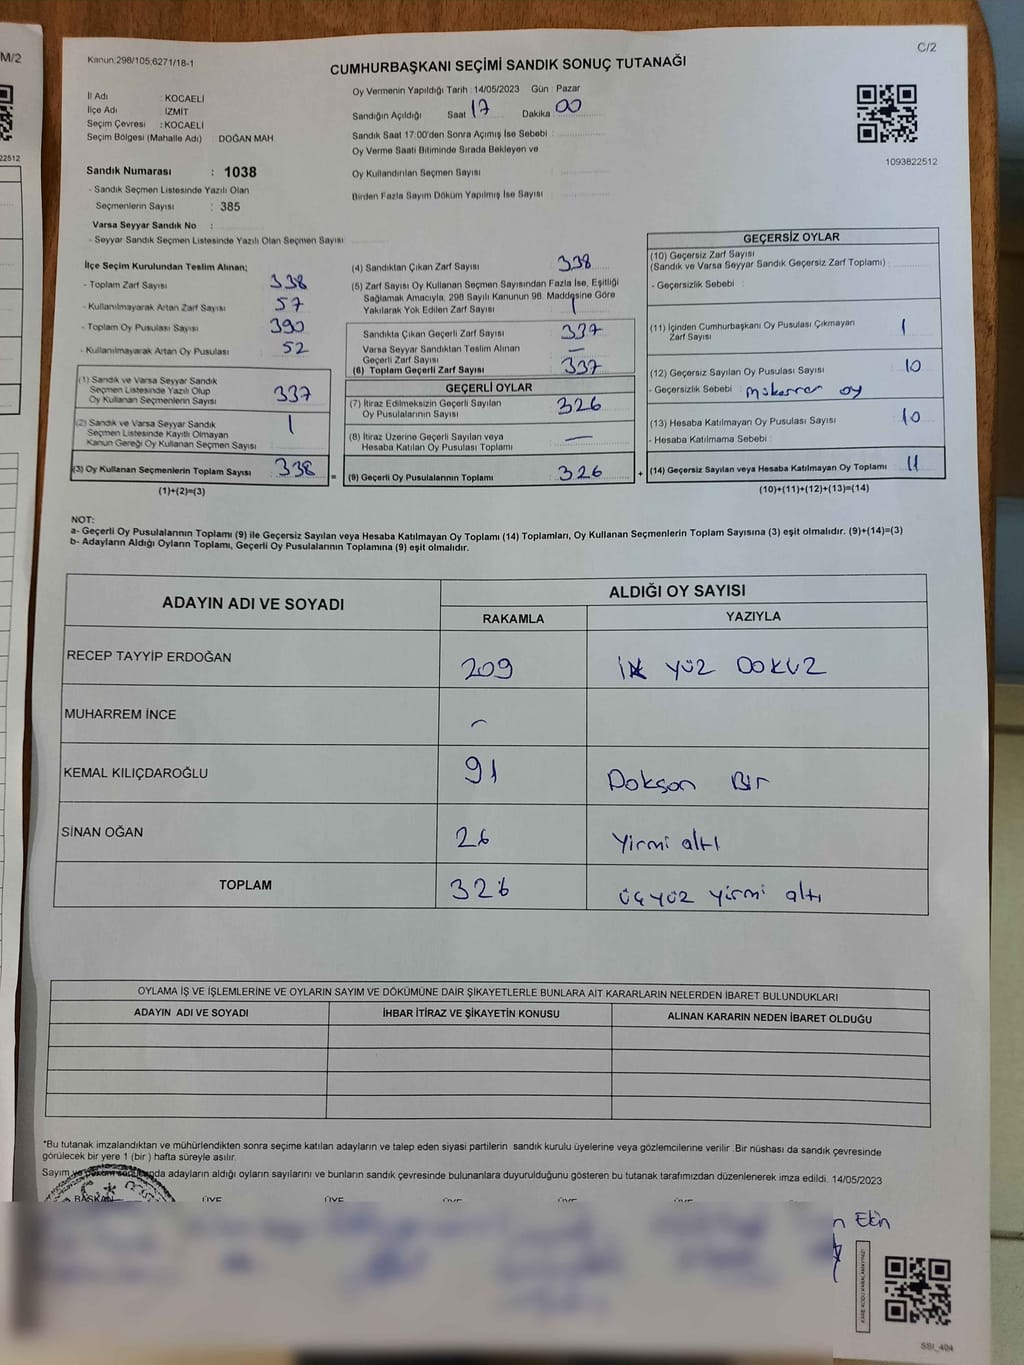 M/2
22512
Kanun.298/105;6271/18-1
C/2
CUMHURBAŞKANI SEÇİMİ SANDIK SONUÇ TUTANAĞI
İl Adı : KOCAELİ
İlçe Adı İZMİT
Seçim Çevresi : KOCAELİ
Seçim Bölgesi (Mahalle Adı) DOĞAN MAH.
Oy Vermenin Yapıldığı Tarih : 14/05/2023 Gün : Pazar
Sandığın Açıldığı Saat 17 Dakika 00
Sandık Saat 17:00'den Sonra Açımış İse Sebebi :
Oy Verme Saati Bitiminde Sırada Bekleyen ve
Oy Kullandırılan Seçmen Sayısı
Birden Fazla Sayım Döküm Yapılmış İse Sayısı :
1093822512
Sandık Numarası : 1038
- Sandık Seçmen Listesinde Yazılı Olan
Seçmenlerin Sayısı : 385
Varsa Seyyar Sandık No :
- Seyyar Sandık Seçmen Listesinde Yazılı Olan Seçmen Sayısı
İlçe Seçim Kurulundan Teslim Alınan;
- Toplam Zarf Sayısı 338
- Kullanılmayarak Artan Zarf Sayısı 57
- Toplam Oy Pusulası Sayısı 390
- Kullanılmayarak Artan Oy Pusulası 52
(1) Sandık ve Varsa Seyyar Sandık
Seçmen Listesinde Yazılı Olup
Oy Kullanan Seçmenlerin Sayısı 337
(2) Sandık ve Varsa Seyyar Sandık
Seçmen Listesinde Kayıtlı Olmayan
Kanun Gereği Oy Kullanan Seçmen Sayısı 1
(3) Oy Kullanan Seçmenlerin Toplam Sayısı 338
(1)+(2)=(3)
=
(4) Sandıktan Çıkan Zarf Sayısı 338
(5) Zarf Sayısı Oy Kullanan Seçmen Sayısından Fazla İse, Eşitliği
Sağlamak Amacıyla, 298 Sayılı Kanunun 98. Maddesine Göre
Yakılarak Yok Edilen Zarf Sayısı 1
Sandıkta Çıkan Geçerli Zarf Sayısı 337
Varsa Seyyar Sandıktan Teslim Alınan
Geçerli Zarf Sayısı —
(6) Toplam Geçerli Zarf Sayısı 337
GEÇERLİ OYLAR
(7) İtiraz Edilmeksizin Geçerli Sayılan
Oy Pusulalarının Sayısı 326
(8) İtiraz Üzerine Geçerli Sayılan veya
Hesaba Katılan Oy Pusulası Toplamı —
(9) Geçerli Oy Pusulalarının Toplamı 326
+
GEÇERSİZ OYLAR
(10) Geçersiz Zarf Sayısı
(Sandık ve Varsa Seyyar Sandık Geçersiz Zarf Toplamı) :
- Geçersizlik Sebebi :
(11) İçinden Cumhurbaşkanı Oy Pusulası Çıkmayan
Zarf Sayısı 1
(12) Geçersiz Sayılan Oy Pusulası Sayısı 10
- Geçersizlik Sebebi : mükerrer oy
(13) Hesaba Katılmayan Oy Pusulası Sayısı 10
- Hesaba Katılmama Sebebi :
(14) Geçersiz Sayılan veya Hesaba Katılmayan Oy Toplamı 11
(10)+(11)+(12)+(13)=(14)
NOT:
a- Geçerli Oy Pusulalarının Toplamı (9) ile Geçersiz Sayılan veya Hesaba Katılmayan Oy Toplamı (14) Toplamları, Oy Kullanan Seçmenlerin Toplam Sayısına (3) eşit olmalıdır. (9)+(14)=(3)
b- Adayların Aldığı Oyların Toplamı, Geçerli Oy Pusulalarının Toplamına (9) eşit olmalıdır.
ADAYIN ADI VE SOYADI
ALDIĞI OY SAYISI
RAKAMLA YAZIYLA
RECEP TAYYİP ERDOĞAN 209 İk yüz Dokuz
MUHARREM İNCE –
KEMAL KILIÇDAROĞLU 91 Dokson Bir
SİNAN OĞAN 26 Yirmi altı
TOPLAM 326 üçyüz yirmi altı
OYLAMA İŞ VE İŞLEMLERİNE VE OYLARIN SAYIM VE DÖKÜMÜNE DAİR ŞİKAYETLERLE BUNLARA AİT KARARLARIN NELERDEN İBARET BULUNDUKLARI
ADAYIN ADI VE SOYADI İHBAR İTİRAZ VE ŞİKAYETİN KONUSU ALINAN KARARIN NEDEN İBARET OLDUĞU
*Bu tutanak imzalandıktan ve mühürlendikten sonra seçime katılan adayların ve talep eden siyasi partilerin sandık kurulu üyelerine veya gözlemcilerine verilir .Bir nüshası da sandık çevresinde
görülecek bir yere 1 (bir ) hafta süreyle asılır.
Sayım ve döküm sonucunda adayların aldığı oyların sayılarını ve bunların sandık çevresinde bulunanlara duyurulduğunu gösteren bu tutanak tarafımızdan düzenlenerek imza edildi. 14/05/2023
BAŞKAN ÜYE ÜYE ÜYE ÜYE ÜYE
n Ekin
SSI_404